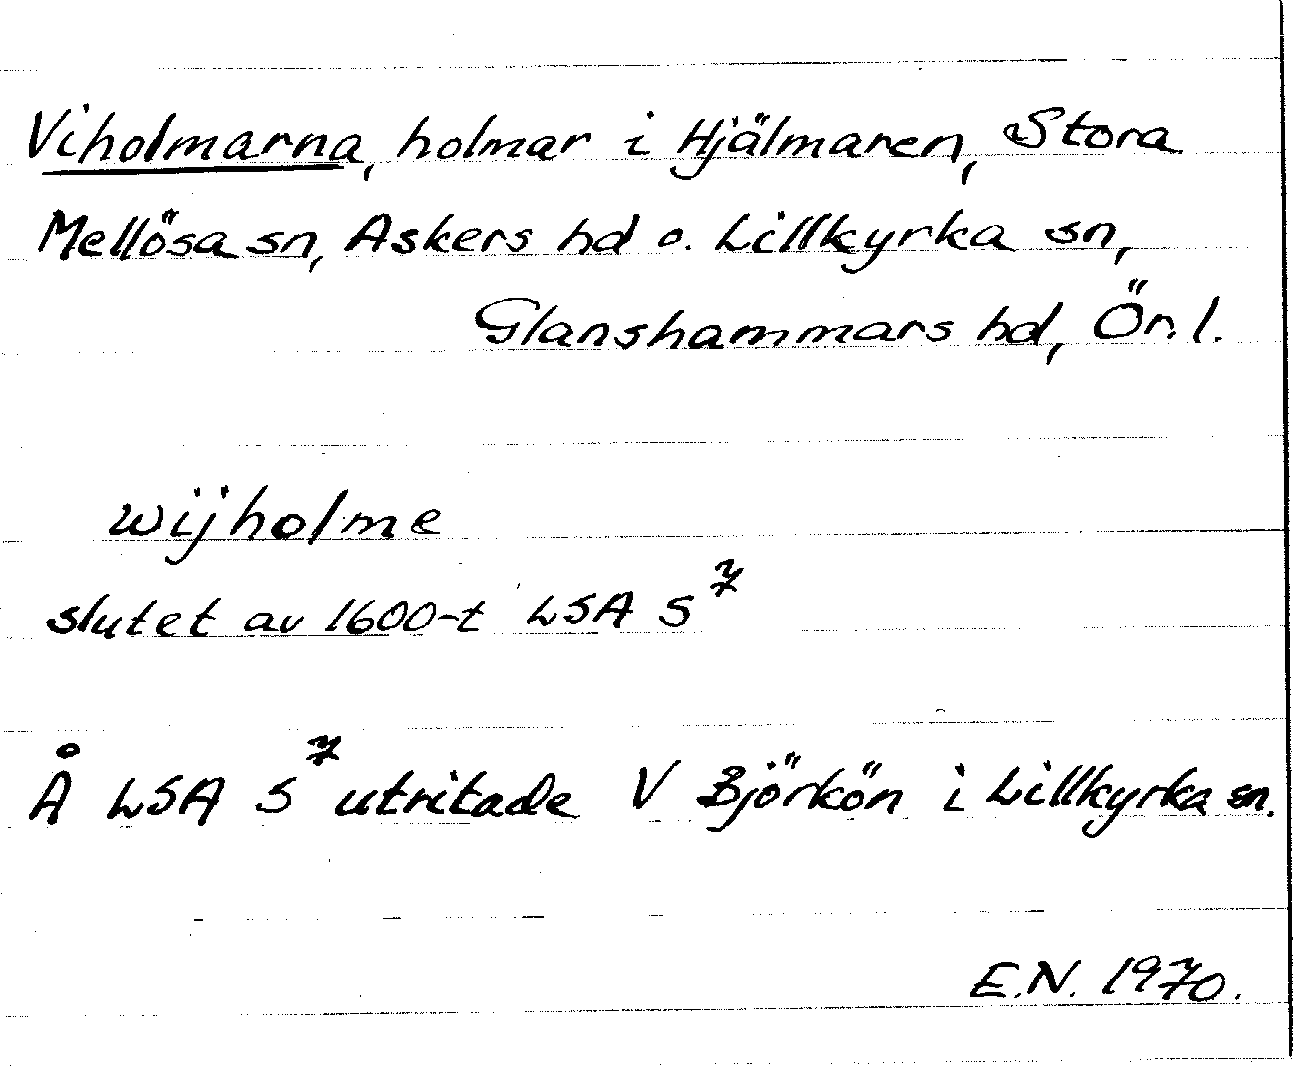 Viholmarna, holmar i Hjälmaren, Stora
Mellösa sn, Askers hd o. Lillkyrka sn,
Glanshammars hd, Ör. l.
wijholme
slutet av 1600-t LSA S⁷
Å LSA S⁷ utritade V Björkön i Lillkyrka sn.
E.N. 1970.